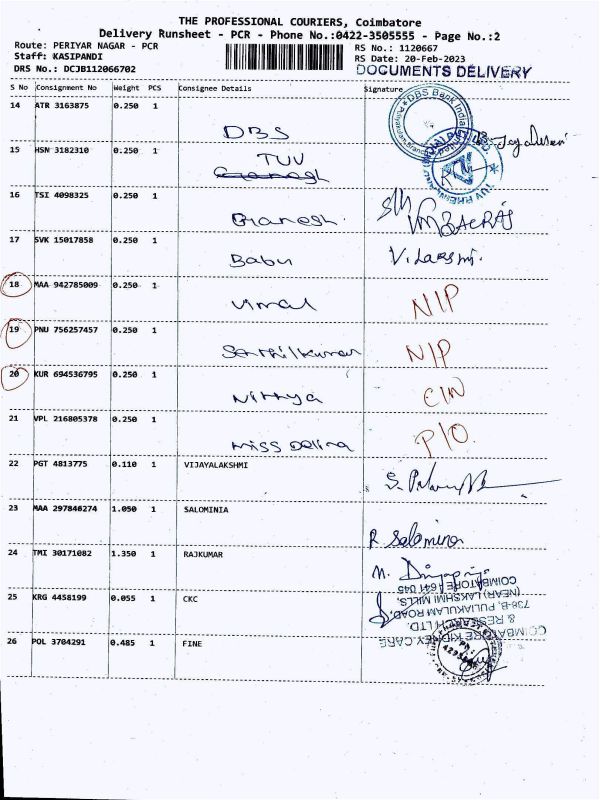 THE PROFESSIONAL COURIERS, Coimbatore
Delivery Runsheet - PCR - Phone No.:0422-3505555 - Page No.:2
Route: PERIYAR NAGAR - PCR
Staff: KASIPANDI
DRS No.: DCJB112066702
RS No.: 1120667
RS Date: 20-Feb-2023
DOCUMENTS DELIVERY
S No Consignment No Weight PCS Consignee Details Signature
14 ATR 3163875 0.250 1
DBS
DBS Bank India
15 HSN 3182310 0.250 1
TUV
Ganesh
16 TSI 4098325 0.250 1
Ganesh.
17 SVK 15017858 0.250 1
Babu
V. Laksmi.
18 MAA 942785009 0.250 1
Vimal
N/P
19 PNU 756257457 0.250 1
Senthilkumar
N/P
20 KUR 694536795 0.250 1
Nithya
C/N
21 VPL 216805378 0.250 1
Miss Delina
P/O.
22 PGT 4813775 0.110 1 VIJAYALAKSHMI
23 MAA 297846274 1.050 1 SALOMINIA
R Salomina
24 TMI 30171082 1.350 1 RAJKUMAR
25 KRG 4458199 0.055 1 CKC
COIMBATORE KIDNEY CARE
738-B, PULIAKULAM ROAD,
(NEAR) LAKSHMI MILLS,
COIMBATORE - 641 045
26 POL 3704291 0.485 1 FINE